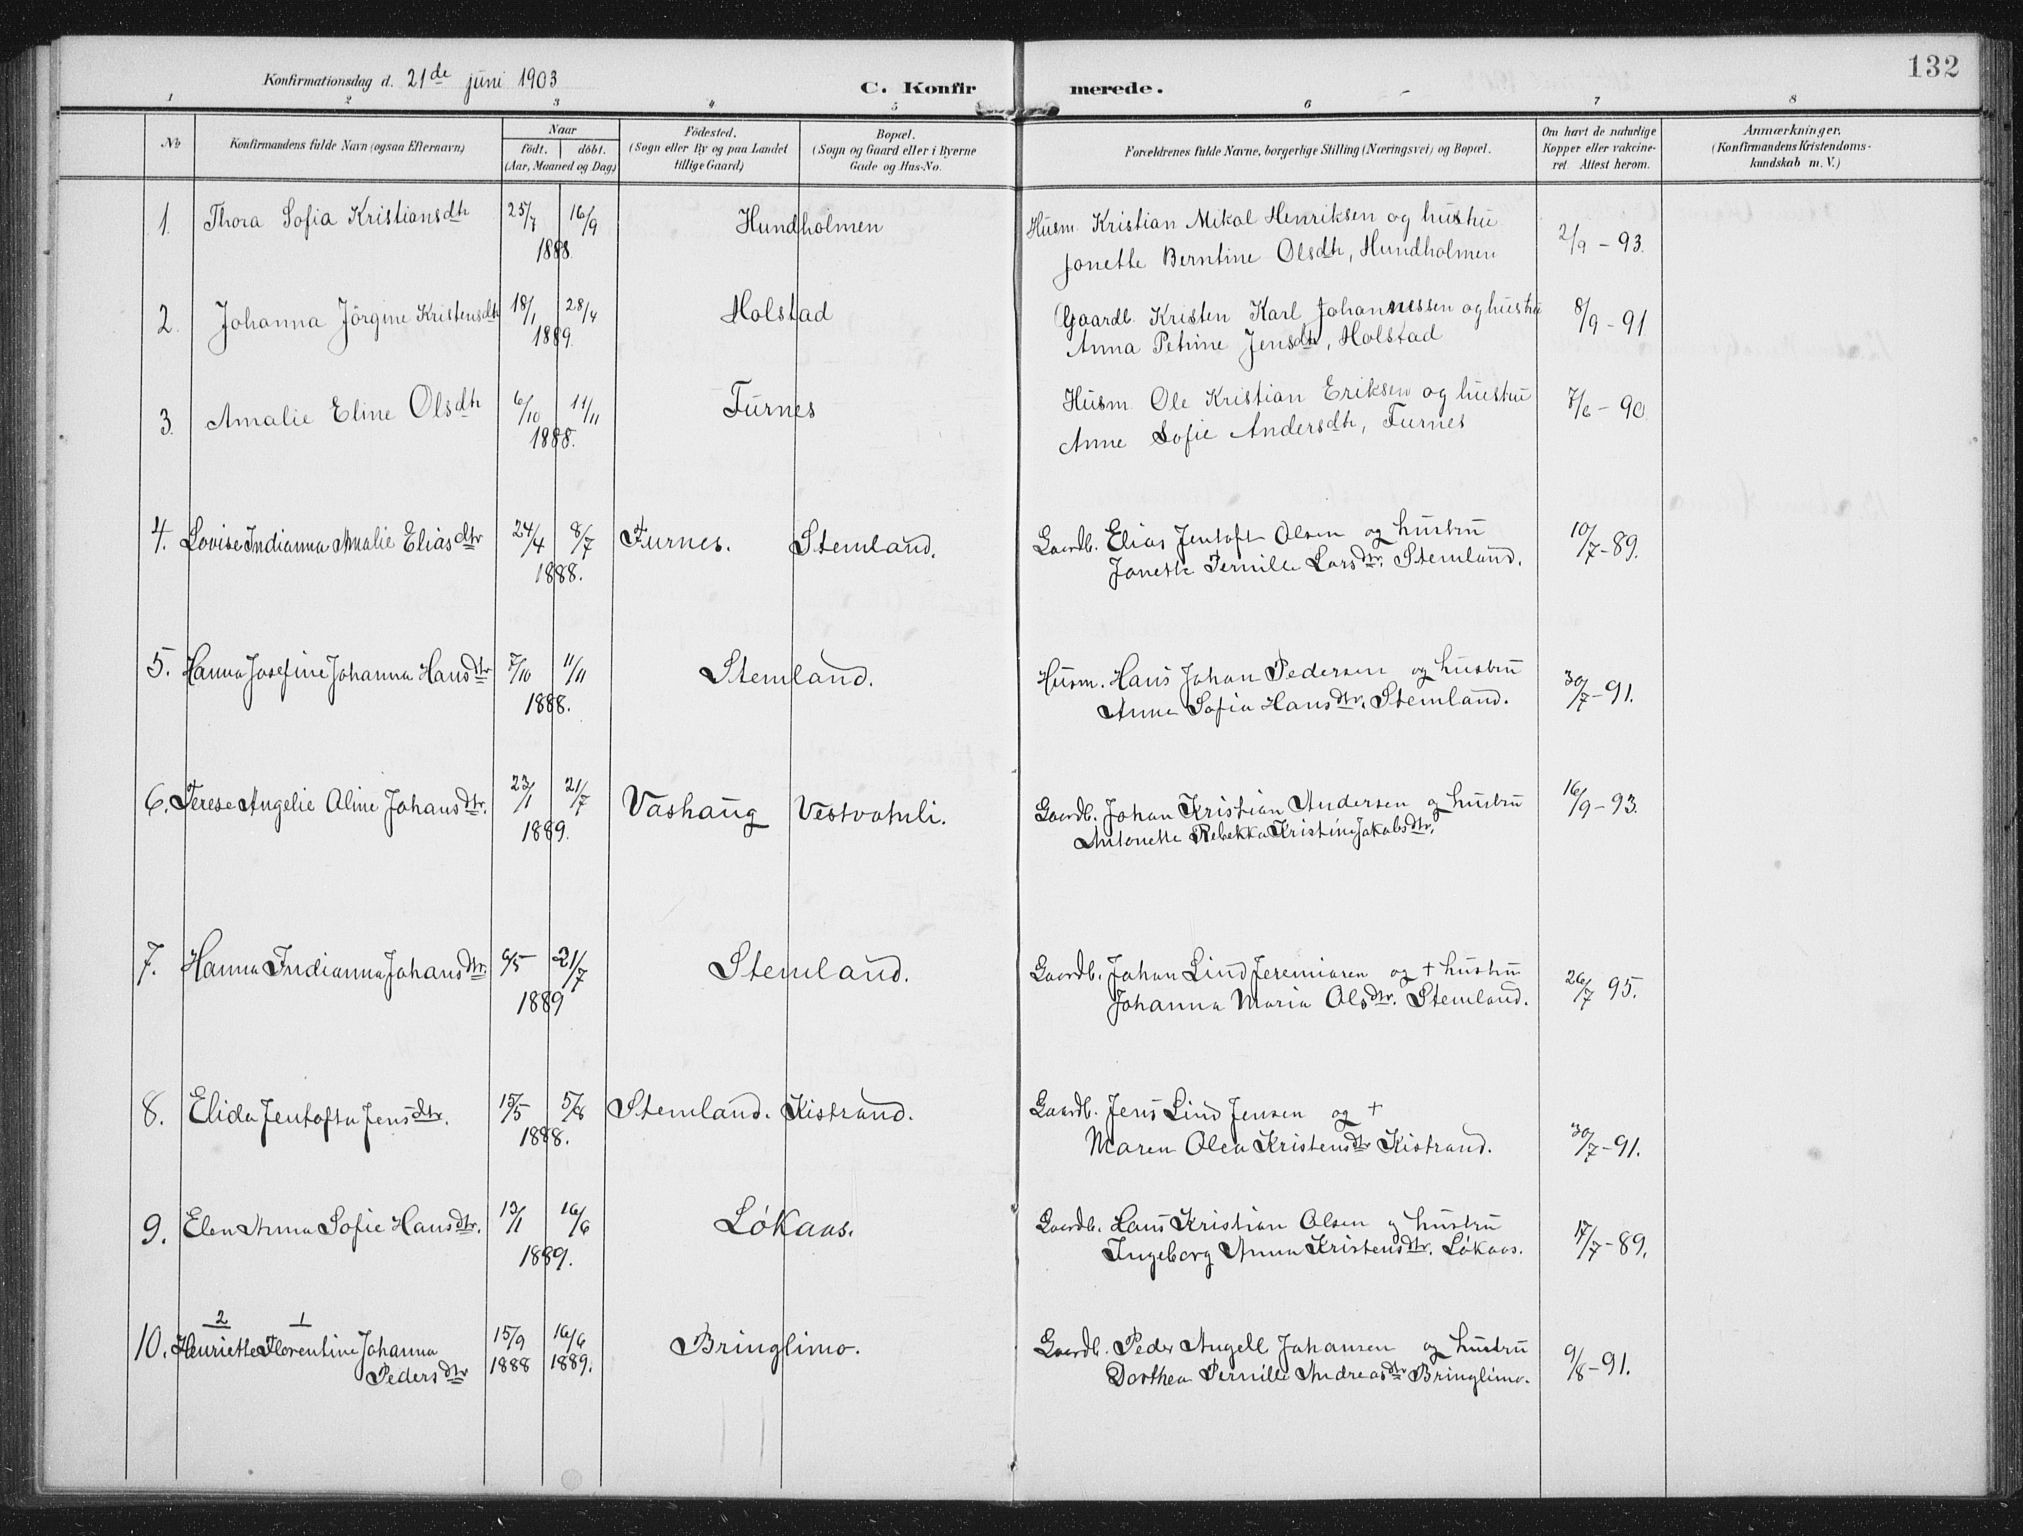 132
Konfirmationsdag d. 21de juni 1903
C. Konfirmerede.
1 2 3 4 5 6 7 8
No Konfirmandens fulde Navn (ogsaa Efternavn) Naar födt. döbt. (Aar, Maaned og Dag) Födested. (Sogn eller By og paa Landet tillige Gaard) Bopæl. (Sogn og Gaard eller i Byerne Gade og Hus-No. Forældrenes fulde Navne, borgerlige Stilling (Næringsvei) og Bopæl. Om havt de naturlige Kopper eller vakcineret. Attest herom. Anmærkninger. (Konfirmandens Kristendomskundskab m. V.)
1. Thora Sofia Kristiansdtr 25/7 16/9 Hundholmen Husm. Kristian Mikal Henriksen og hustru 2/9 - 93.
1888 Jonette Berntine Olsdtr, Hundholmen
2. Johanna Jörgine Kristensdtr 18/1 28/4 Holstad Gaardb. Kristen Karl Johannessen og hustru 8/9 - 91
1889. Anna Petrine Jensdtr, Holstad
3. Amalie Eline Olsdtr 6/10 11/11 Furnes Husm. Ole Kristian Eriksen og hustru 7/6 - 90
1888. Anne Sofie Andersdtr, Furnes
4. Lovise Indianna Amalie Eliasdtr 24/4 8/7 Furnes. Stemland. Gaardb. Elias Jentoft Olsen og hustru 10/7 - 89.
1888. Jonette Pernille Larsdtr. Stemland.
5. Hanna Josefine Johanna Hansdtr 7/10 11/11 Stemland. Husm. Hans Johan Pedersen og hustru 30/7 - 91.
1888. Anne Sofia Hansdtr. Stemland.
6. Terese Angelie Aline Johansdtr. 23/1 21/7 Vashaug Vestvatnli. Gaardb. Johan Kristian Andersen og hustru 16/9 - 93.
1889. Antonette Rebekka Kristine Jakobsdtr.
7. Hanna Indianna Johansdtr. 6/5 21/7 Stemland. Gaardb. Johan Lind Jeremiasen og + hustru 26/7 95.
1889 Johanna Maria Olsdtr. Stemland.
8. Elida Jentofta Jensdtr. 15/5 5/8 Stemland. Kistrand. Gaardb. Jens Lind Jensen og +
1888. Maren Olea Kristensdtr Kistrand. 30/7 - 91.
9. Elen Anna Sofie Hansdtr. 13/1 16/6 Løkaas. Gaardb. Hans Kristian Olsen og hustru 17/7 - 89.
1889. Ingeborg Anna Kristensdtr. Løkaas.
2 1
10. Henriette Florentine Johanna 15/9 16/6 Bringlimo. Gaardb. Peder Angell Johansen og hustru 9/8 - 91.
Pedersdtr 1888 1889. Dorthea Pernille Andreasdtr Bringlimo.